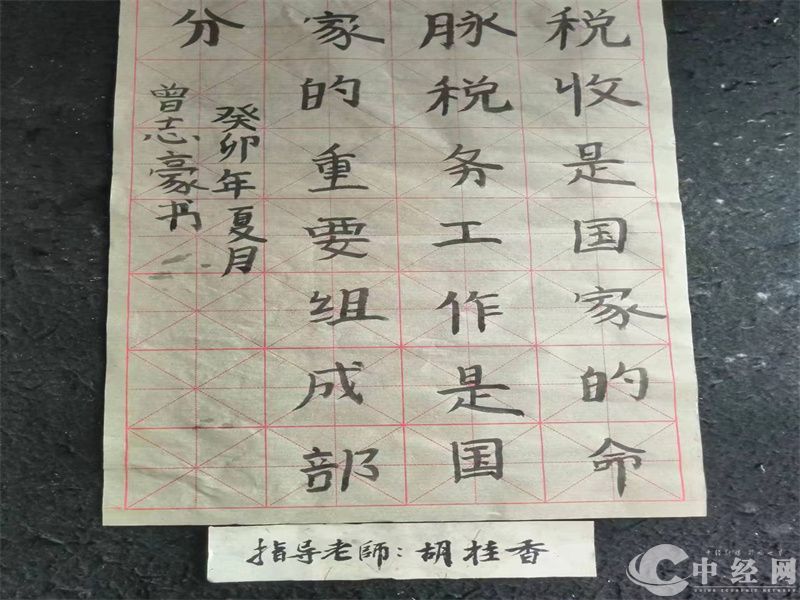 税收是国家的命
脉税务工作是国
家的重要组成部
分
癸卯年夏月
曾志豪书
指导老師:胡桂香
中经网